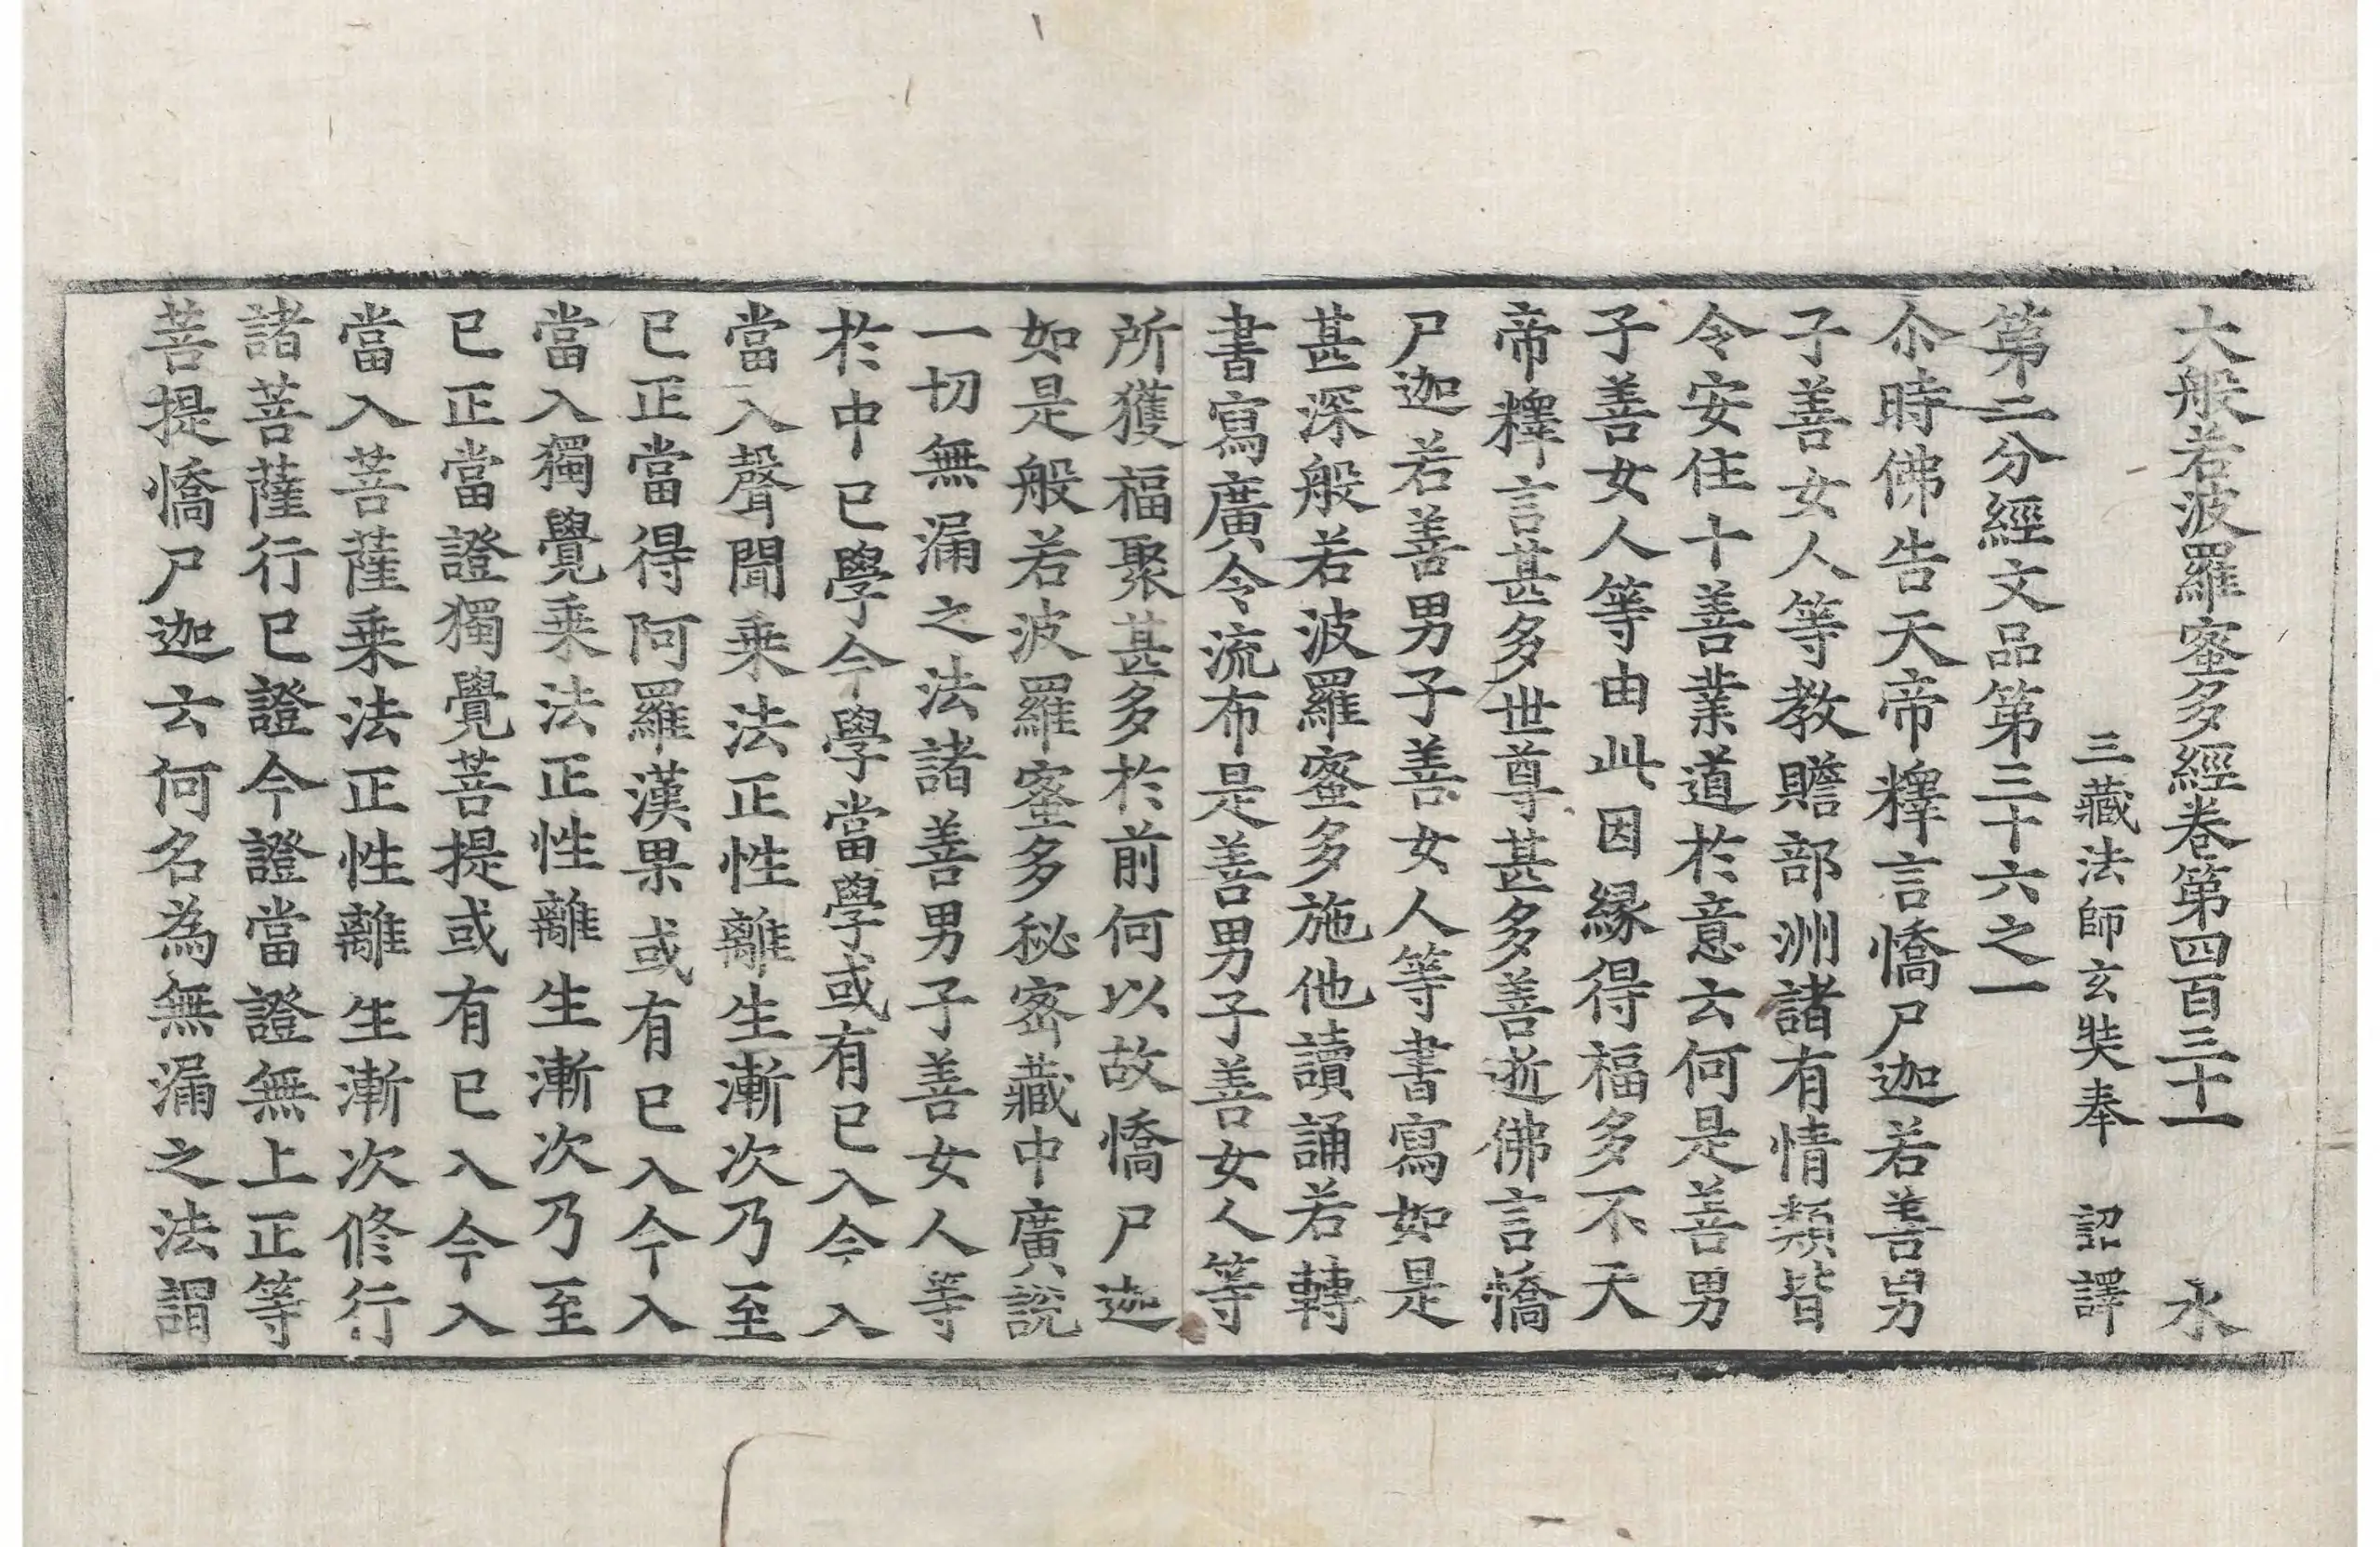 大般若波羅蜜多經卷第四百三十一 永
三藏法師玄奘奉 詔譯
第二分經文品第三十六之一
尒時佛告天帝釋言憍尸迦若善男
子善女人等教贍部洲諸有情類皆
令安住十善業道於意云何是善男
子善女人等由此因緣得福多不天
帝釋言甚多世尊甚多善逝佛言憍
尸迦若善男子善女人等書寫如是
甚深般若波羅蜜多施他讀誦若轉
書寫廣令流布是善男子善女人等
所獲福聚甚多於前何以故憍尸迦
如是般若波羅蜜多秘密藏中廣說
一切無漏之法諸善男子善女人等
於中已學今學當學或有已入今入
當入聲聞乘法正性離生漸次乃至
已正當得阿羅漢果或有已入今入
當入獨覺乘法正性離生漸次乃至
已正當證獨覺菩提或有已入今入
當入菩薩乘法正性離生漸次修行
諸菩薩行已證今證當證無上正等
菩提憍尸迦云何名為無漏之法謂